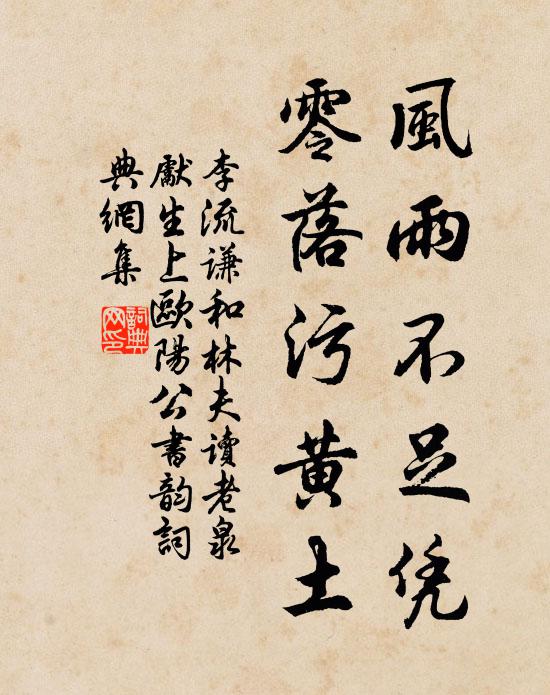 風雨不足凭
零落污黄土
李流谦和林夫读老泉
獻生上歐陽公書韵詞
典網集
詞典网印